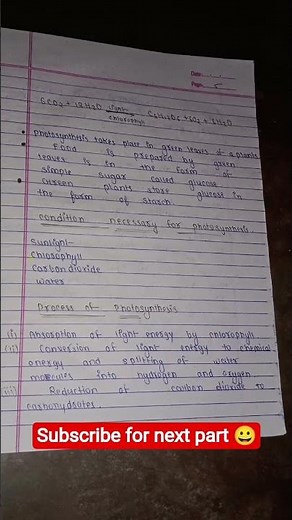 Date:
Page: 5
6CO2 + 12H2O light C6H12O6 + 6O2 + 6H2O
chlorophyll
photosynthesis takes place in green leaves of a plants
Food is prepared by green
leaves is in the form of
simple sugar called glucose
Green plants store glucose in
the form of starch
condition necessary for photosynthesis
sunlight
chlorophyll
carbon dioxide
water
Process of Photosynthesis
(i) Absorption of light energy by chlorophyll
(ii) Conversion of light energy to chemical
energy and spliting of water
molecules into hydrogen and oxygen.
(iii) Reduction of carbon dioxide to
carbohydrates.
Subscribe for next part 😀